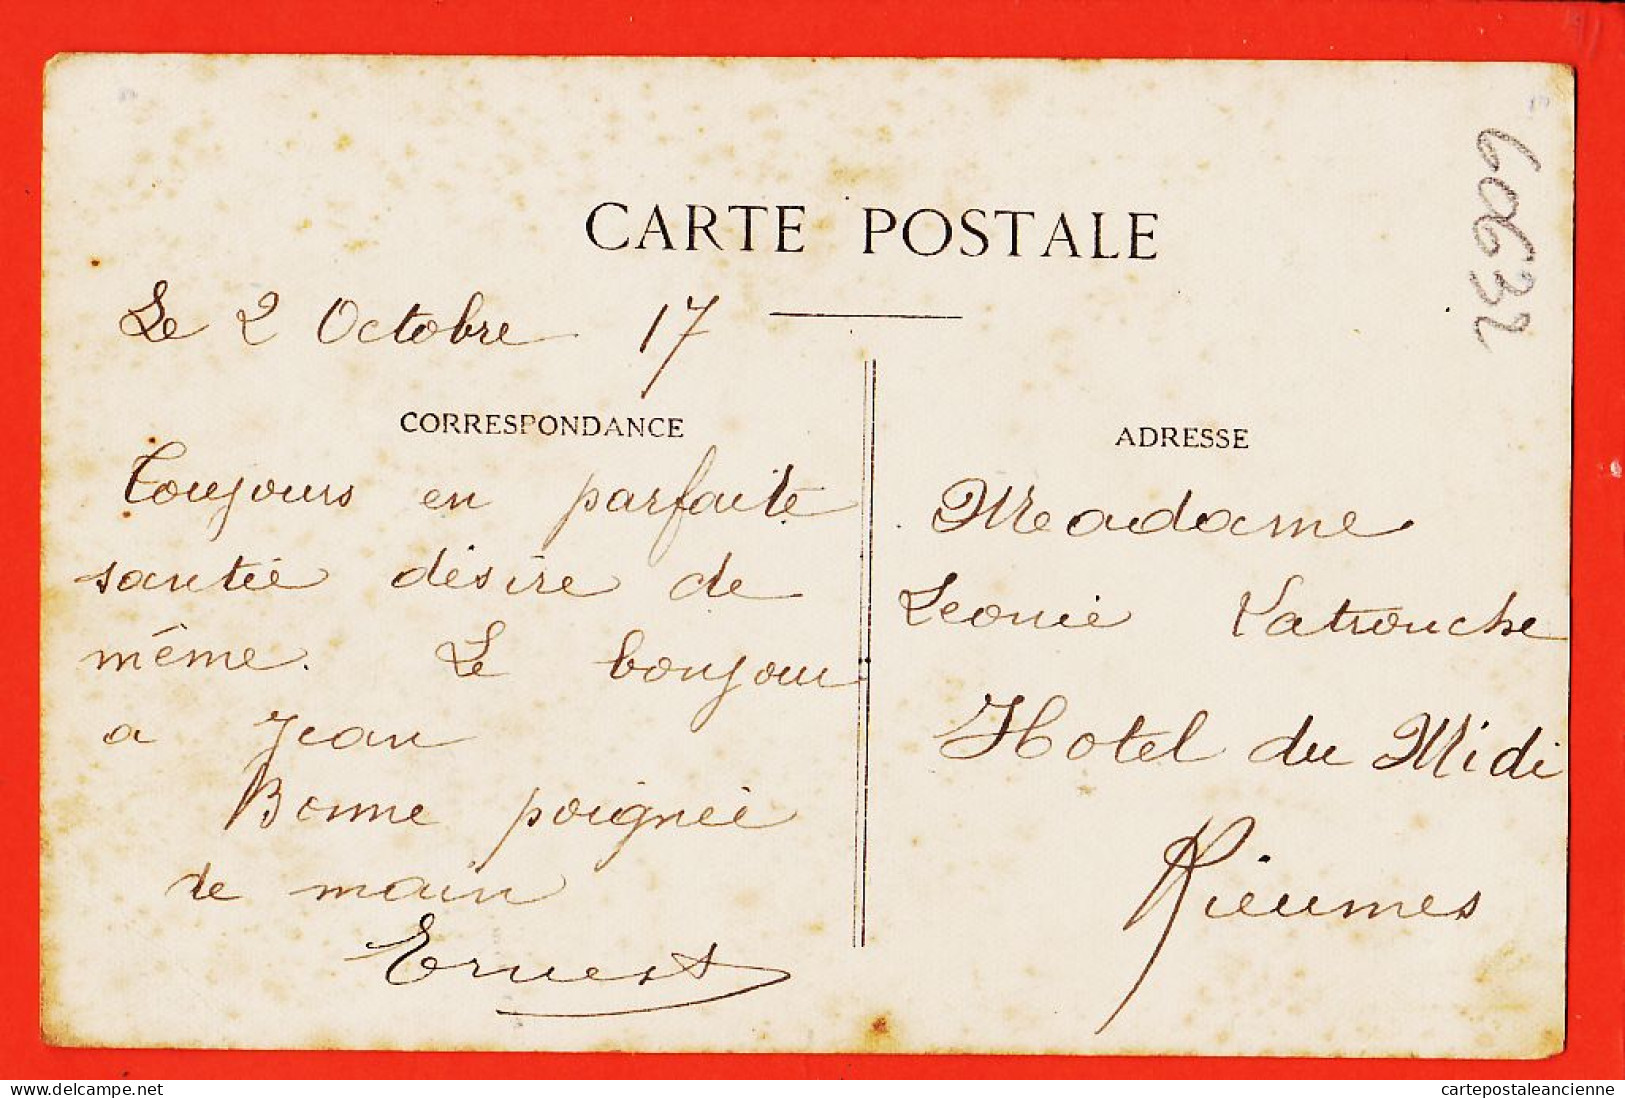 CARTE POSTALE
60632
Le 2 Octobre 17
CORRESPONDANCE
Toujours en parfaite
santée désire de
même. Le boujour
a Jean
Bonne poignée
de main
Ernest
ADRESSE
Madame
Leonie Latrouche
Hotel du Midi
Rieumes
cartepostaleancienne